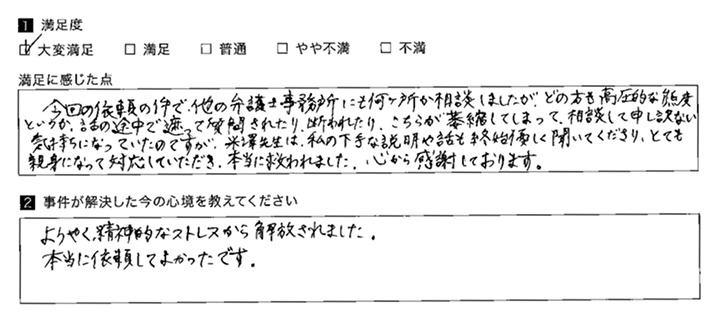 1 満足度
☑ 大変満足 □ 満足 □ 普通 □ やや不満 □ 不満
満足に感じた点
今回の依頼の件で、他の弁護士事務所にも何ヶ所か相談しましたが、どの方も高圧的な態度
というか、話の途中で遮って質問されたり、断われたり、こちらが萎縮してしまって、相談して申し訳ない
気持ちになっていたのですが、米澤先生は、私の下手な説明や話も終始優しく聞いてくださり、とても
親身になって対応していただき、本当に救われました。心から感謝しております。
2 事件が解決した今の心境を教えてください
ようやく、精神的なストレスから解放されました。
本当に依頼してよかったです。